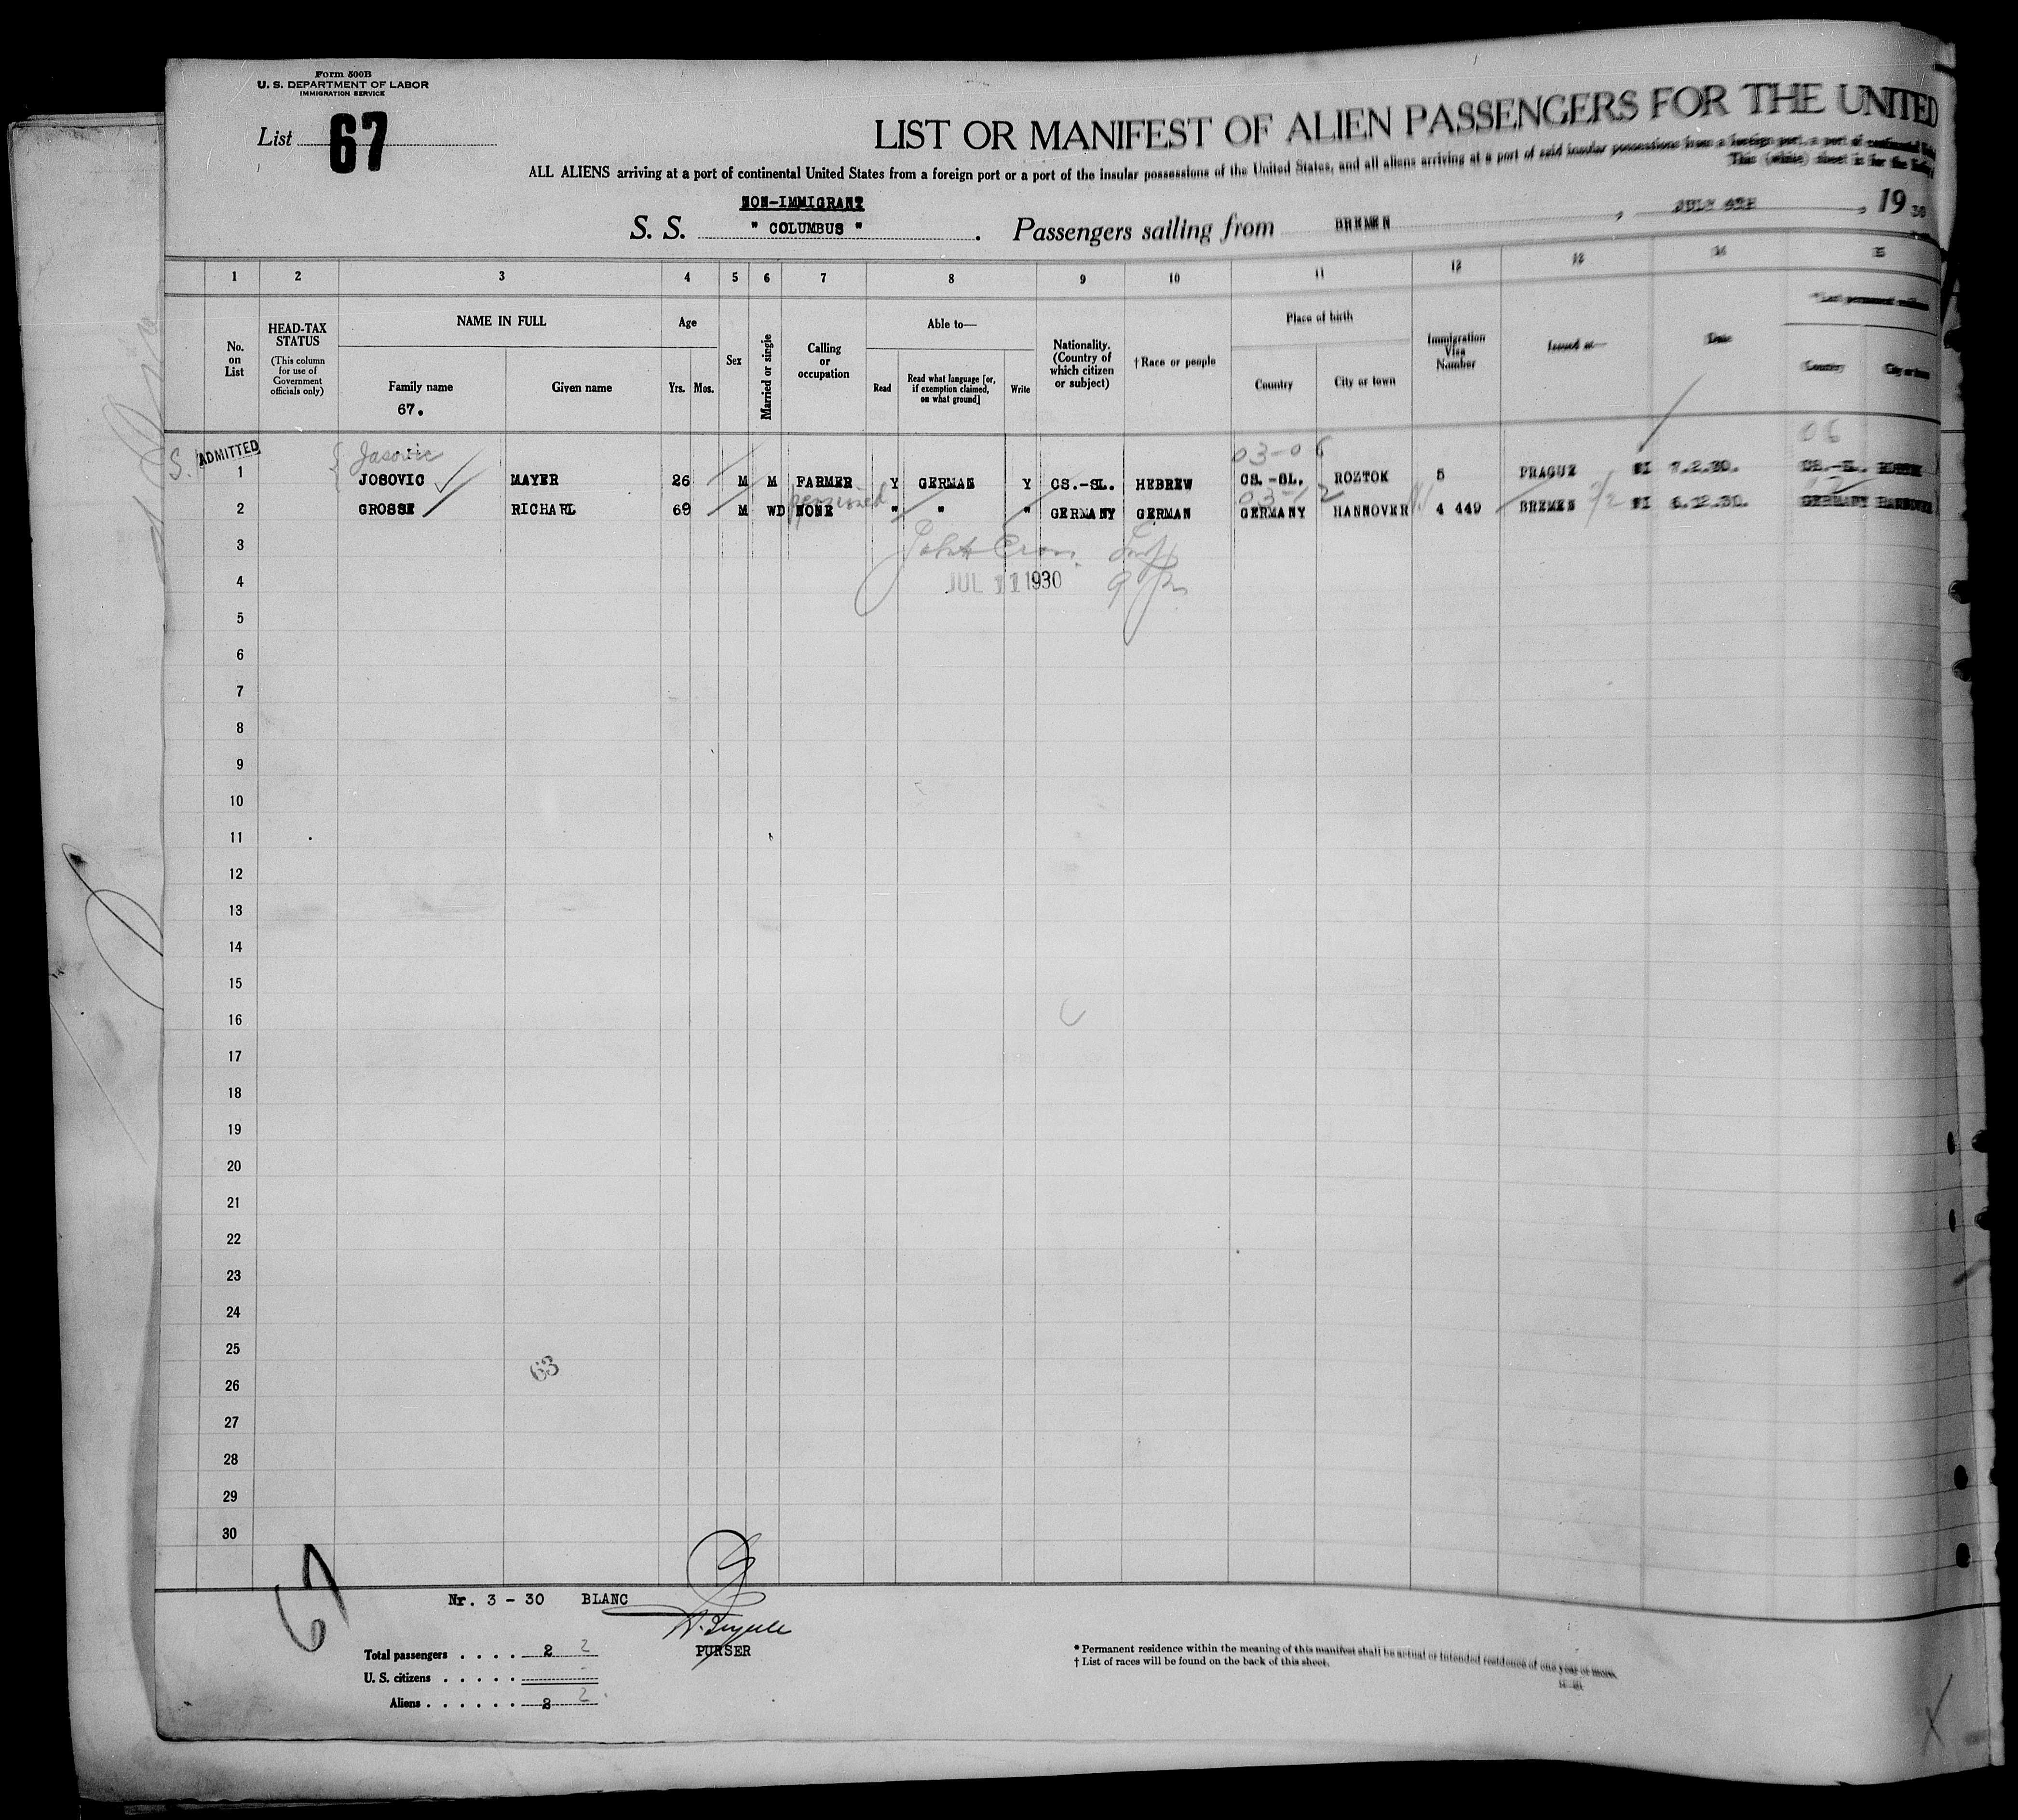 Form 500B
U. S. DEPARTMENT OF LABOR
IMMIGRATION SERVICE
List 67
LIST OR MANIFEST OF ALIEN PASSENGERS FOR THE UNITED
ALL ALIENS arriving at a port of continental United States from a foreign port or a port of the insular possessions of the United States, and all aliens arriving at a port of said insular possessions from a foreign port, a port of continental
This (white) sheet is for the
NON-IMMIGRANT
S. S. " COLUMBUS " . Passengers sailing from BREMEN , JULY , 19 30
1 2 3 4 5 6 7 8 9 10 11 12 13 14 15
No. on List
HEAD-TAX STATUS
(This column for use of Government officials only)
NAME IN FULL
Family name
67.
Given name
Age
Yrs. Mos.
Sex
Married or single
Calling or occupation
Able to—
Read
Read what language [or, if exemption claimed, on what ground]
Write
Nationality. (Country of which citizen or subject)
†Race or people
Place of birth
Country
City or town
Immigration Visa Number
Issued at—
Date
*Last permanent residence
Country
City or town
S. ADMITTED
Jasovic
03-06 06
1 JOSOVIC MAYER 26 M M FARMER Y GERMAN Y CS.-SL. HEBREW CS.-SL. ROZTOK 5 PRAGUE 7.2.30. CS.-SL.
03-12
2 GROSSE RICHARD 69 M WD NONE " " " GERMANY GERMAN GERMANY HANNOVER 4 449 BREMEN 6.12.30. GERMANY HANNOVER
3
JUL 11 1930
4
5
6
7
8
9
10
11
12
13
14
15
16
17
18
19
20
21
22
23
24
25
63
26
27
28
29
30
67
Nr. 3 - 30 BLANC
PURSER
Total passengers . . . . 2 2
U. S. citizens . . . . .
Aliens . . . . . . 2 2
* Permanent residence within the meaning of this manifest shall be actual or intended residence of one year or more.
† List of races will be found on the back of this sheet.
X